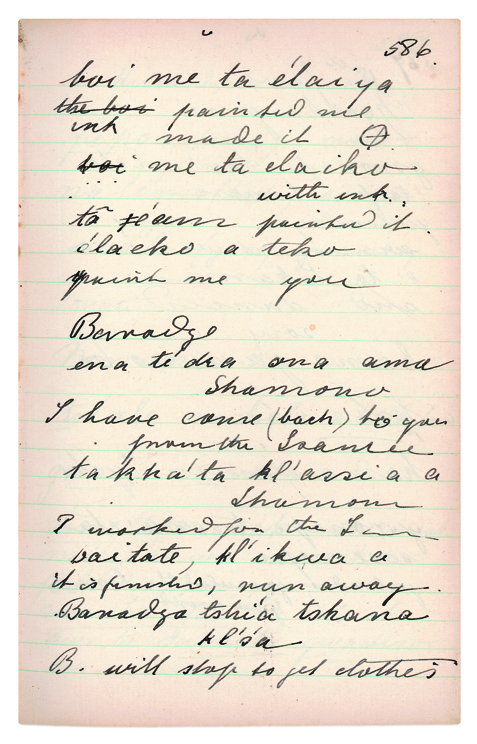 586.
boi me ta élaiya
the boi painted me
ink made it
boi me ta elaiko
with ink.
tā painted it.
élaeko a teko
paint me you
Baradze
ena té dra ona ama
Shamono
I have come (back) to you
from the
takkha'ta kl'assi a a
I worked for the I
vaitate, kl'ikwa a
it is finished, run away.
Baradza tshía tskana
kl'śa
B. will stop to get clothes